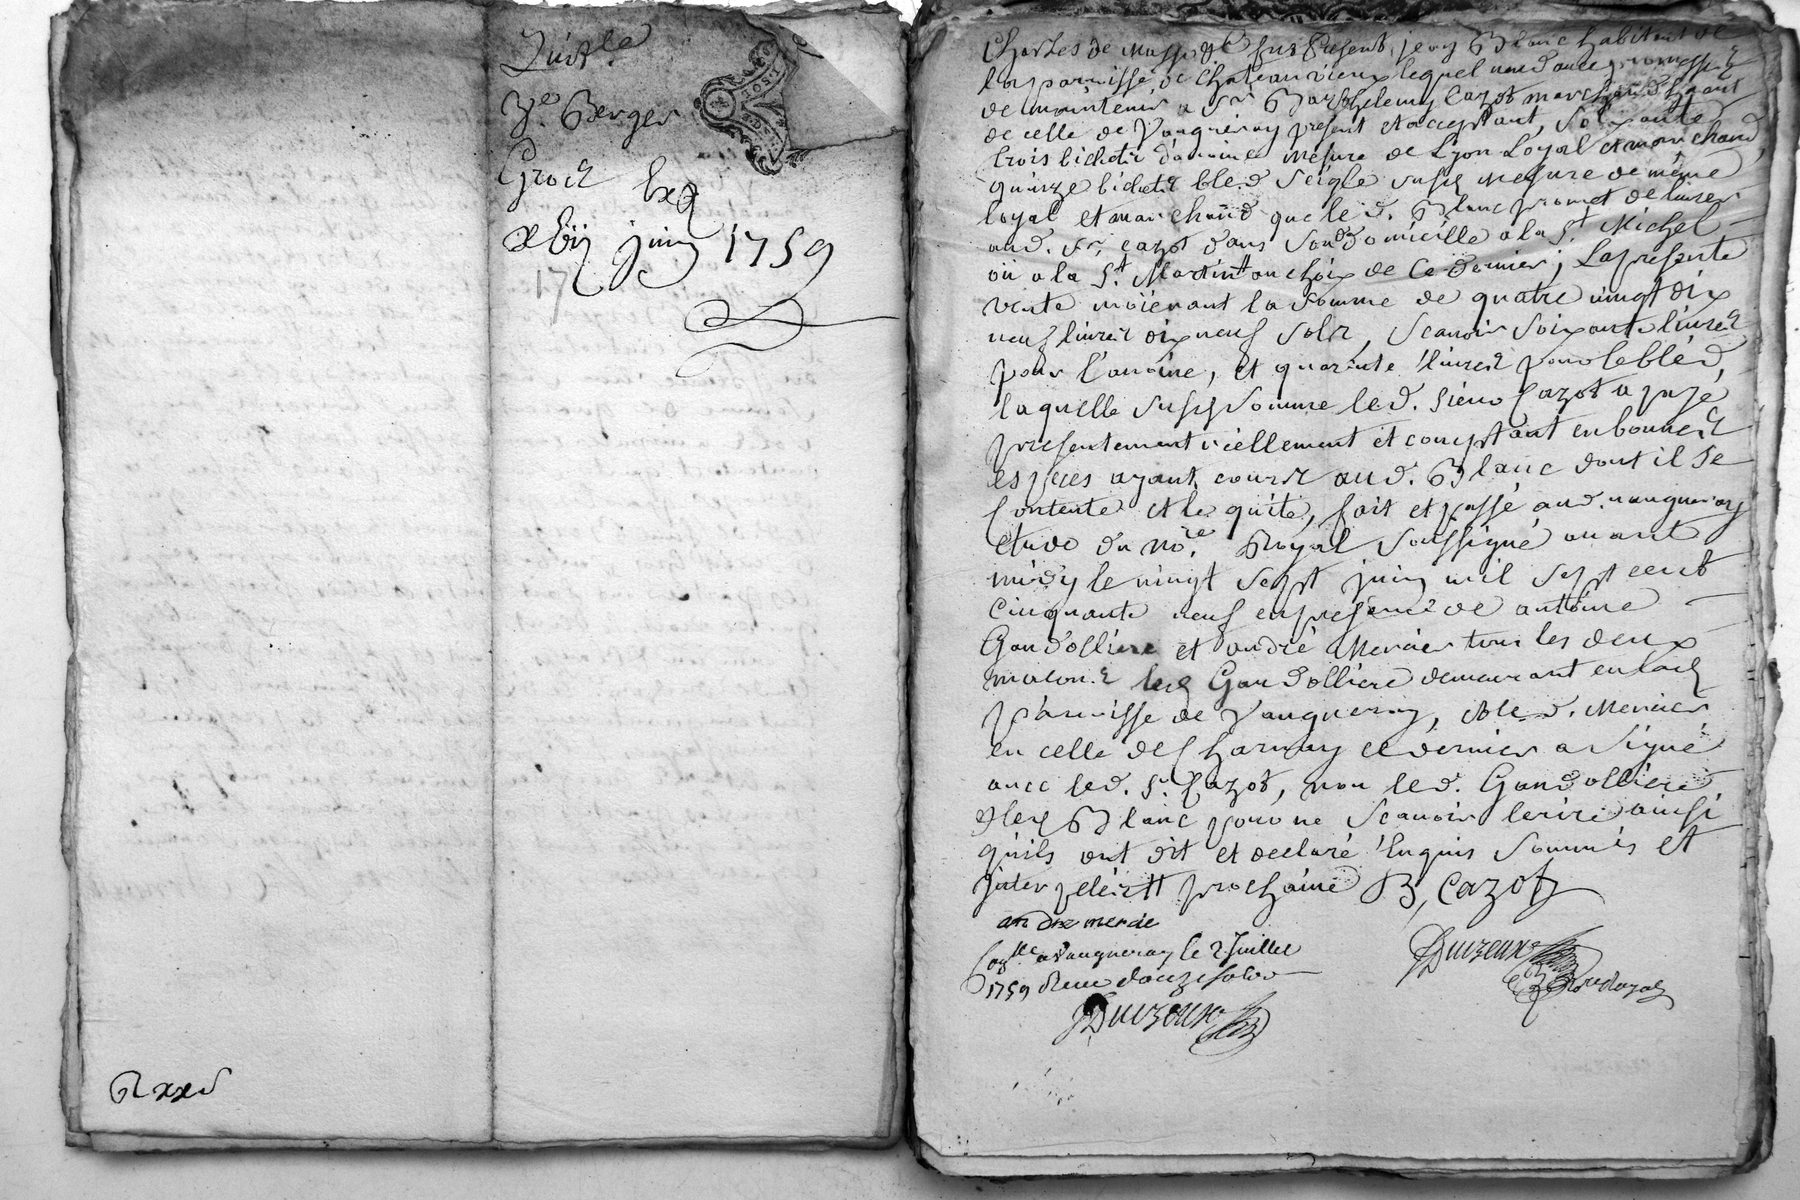 Quitte
Ve. Berger
Groz
Exp
xxvij juin 1759
17
R xxs
jean Blanc habitant de
la paroisse de Chateauvieux lequel vend avec promesse
de maintenir a Sr Barthelemy Cazot marchand h̃ant
de celle de Vaugneray present et acceptant, Soixante
trois bichetz d'avoine mesure de Lyon Loyal et marchand,
quinze bichetz bled Seigle susd mesure de même
loyal et marchand que led. Blanc promet de livrer
aud. Sr. Cazot dans son domicille a la St. Michel
ou a la St. Martin au choix de ce dernier; La presente
vente moiënant la Somme de quatre vingt dix
neuf livres dix neuf Solz, Scavoir Soixante livres
pour l'avoine, et quarente livres pour le bled,
laquelle susd Somme led. Sieur Cazot a payé
presentement réellement et comptant en bonnes
especes ayant cours aud. Blanc dont il Se
Contente et le quitte, fait et passé aud. vaugneray
étude du nore. Royal Soussigné avant
midy le vingt Sept juin mil Sept cent
Cinquante neuf en presence de antoine
Gandolliere et andré Mercier tous les deux
macons led Gandolliere demeurant en lad
parroisse de Vaugneray, et led. Mercier
en celle de Charnay ce dernier a Signé
avec led. Sr. Cazot, non led. Gandolliere
et led Blanc pour ne Scavoir Ecrire ainsi
qu'ils ont dit et declaré Enquis Sommés et
interpelés prochaine B, Cazot
andre mercie
Conlle a Vaugneray le 2 Juillet
1759 Receu douze solz
Duizeux
Duizeux